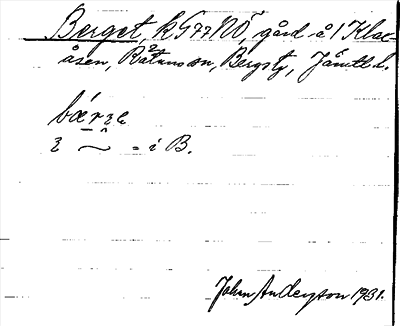 Berget, kG77NÖ, gård å 1 Klax-
åsen, Rätans sn, Bergs tg, Jämtl. l.
bǽrʒe
ʒ ~ = i B.
Johan Anderson 1931.